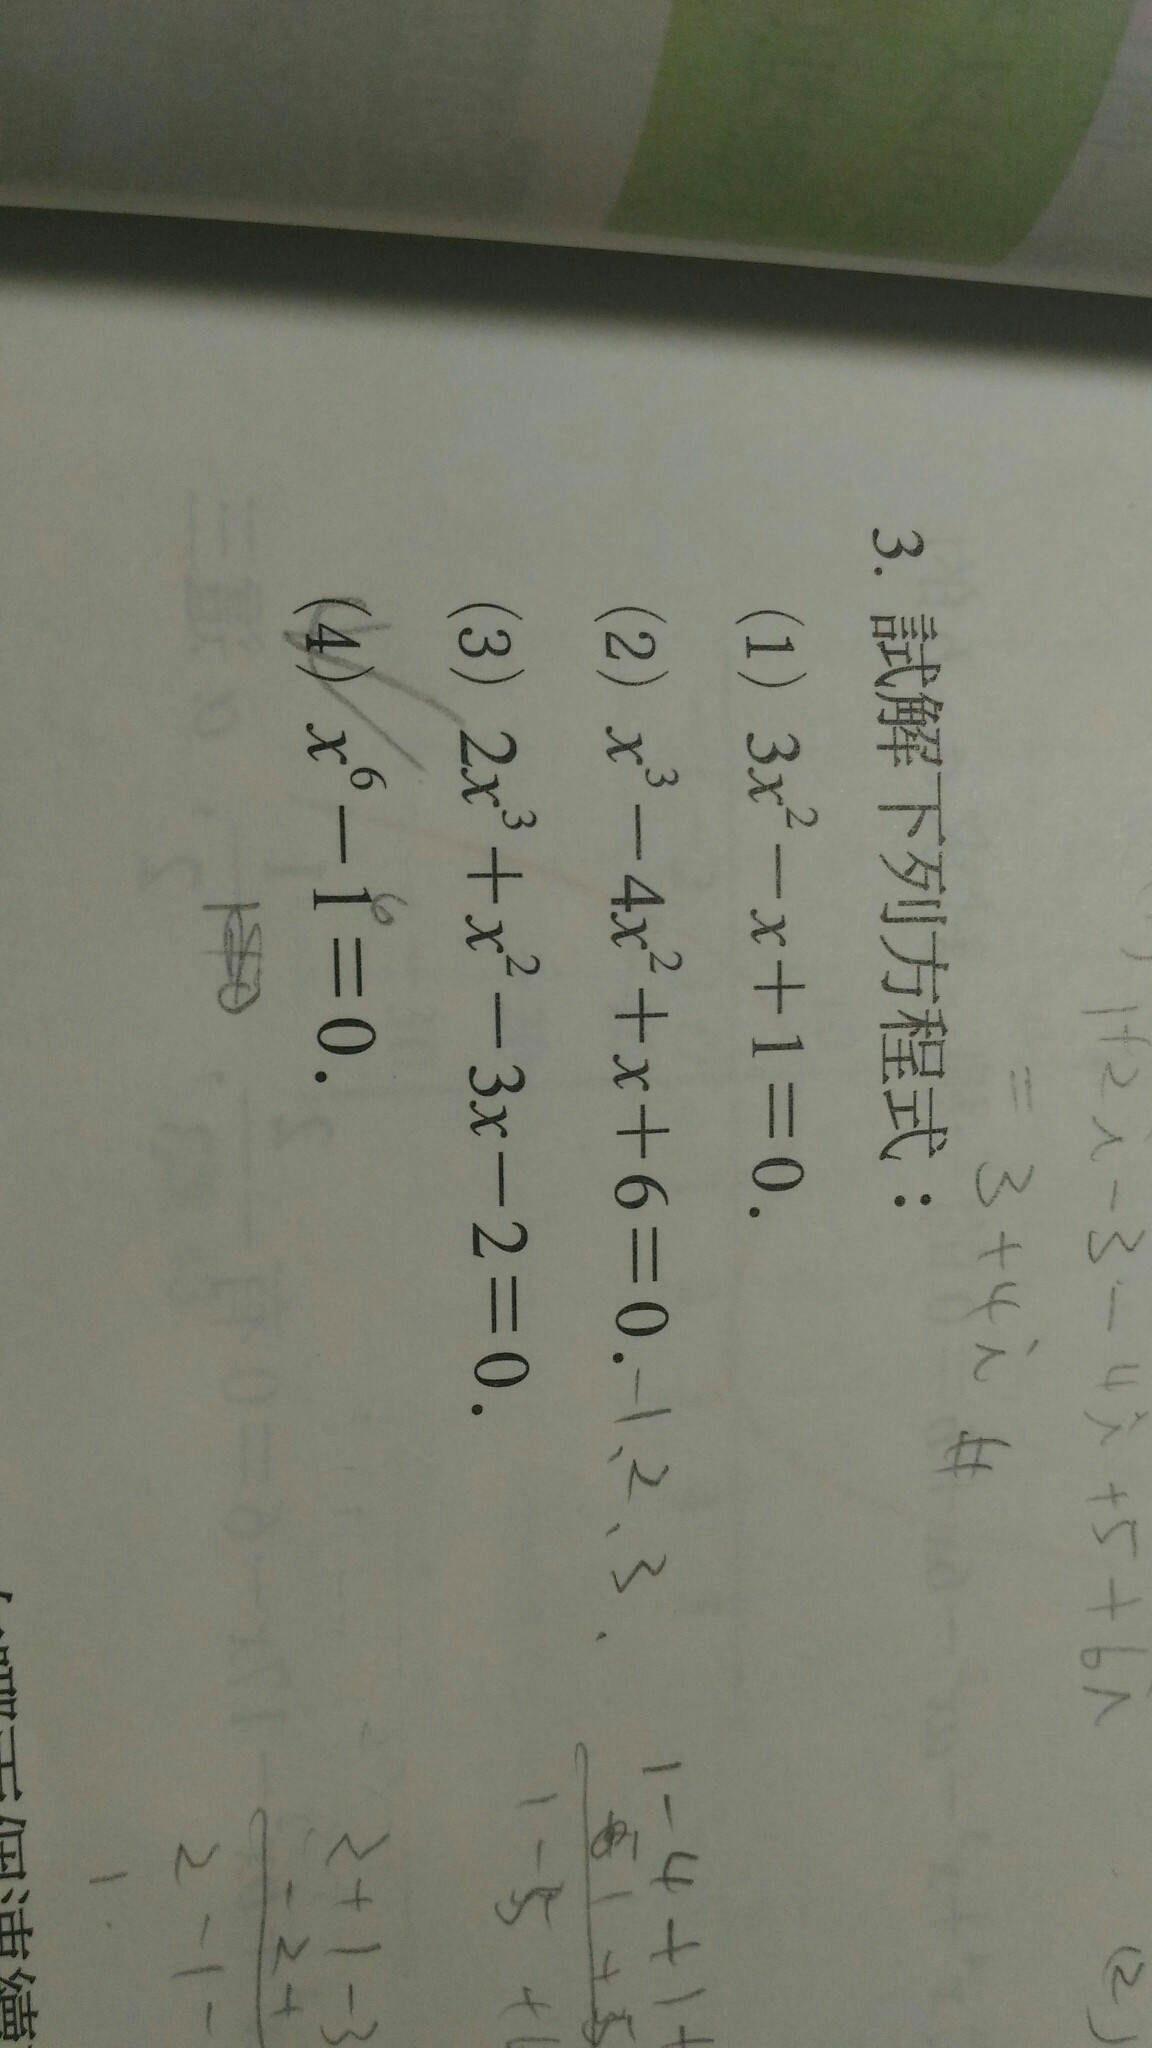 1+2i-3-4i+5+6i
(2)
= 3+4i #
3. 試解下列方程式：
(1) 3x²-x+1=0.
(2) x³-4x²+x+6=0. -1、2、3.
(3) 2x³+x²-3x-2=0.
(4) x⁶-1=0.
6
1-4+1+
1-5+6
2+1-3
-2+
2-1-
1